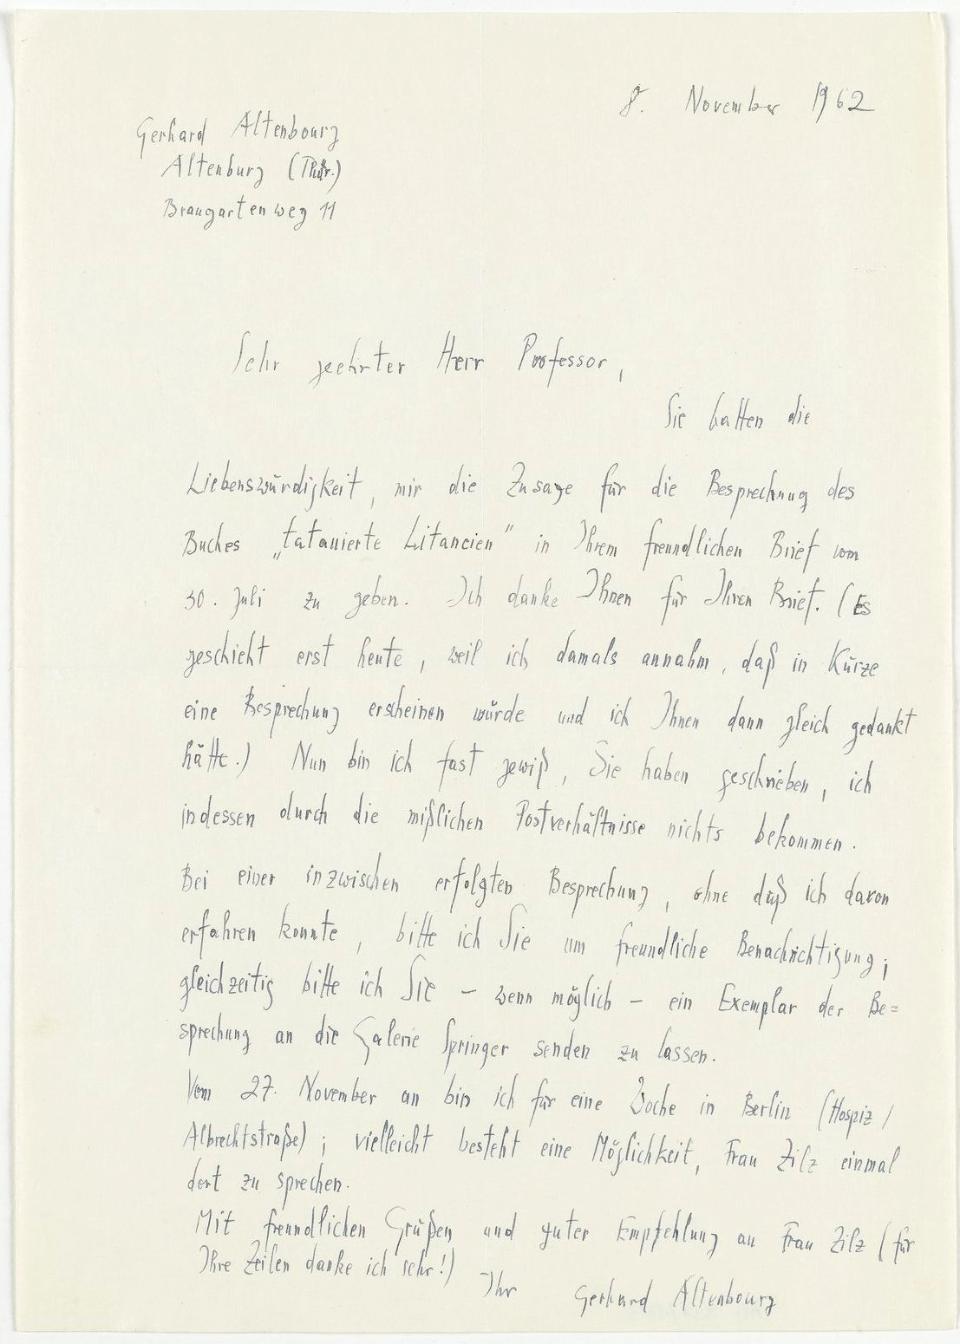 8. November 1962
Gerhard Altenbourg
Altenburg (Thür.)
Braugartenweg 11
Sehr geehrter Herr Professor,
Sie hatten die
Liebenswürdigkeit, mir die Zusage für die Besprechung des
Buches „tatauierte Litaneien" in Ihrem freundlichen Brief vom
30. Juli zu geben. Ich danke Ihnen für Ihren Brief. (Es
geschieht erst heute, weil ich damals annahm, daß in Kürze
eine Besprechung erscheinen würde und ich Ihnen dann gleich gedankt
hätte.) Nun bin ich fast gewiß, Sie haben geschrieben, ich
indessen durch die mißlichen Postverhältnisse nichts bekommen.
Bei einer inzwischen erfolgten Besprechung, ohne daß ich davon
erfahren konnte, bitte ich Sie um freundliche Benachrichtigung;
gleichzeitig bitte ich Sie – wenn möglich – ein Exemplar der Be=
sprechung an die Galerie Springer senden zu lassen.
Vom 27. November an bin ich für eine Woche in Berlin (Hospiz /
Albrechtstraße); vielleicht besteht eine Möglichkeit, Frau Zilz einmal
dort zu sprechen.
Mit freundlichen Grüßen und guter Empfehlung an Frau Zilz (für
Ihre Zeilen danke ich sehr!)
Ihr Gerhard Altenbourg